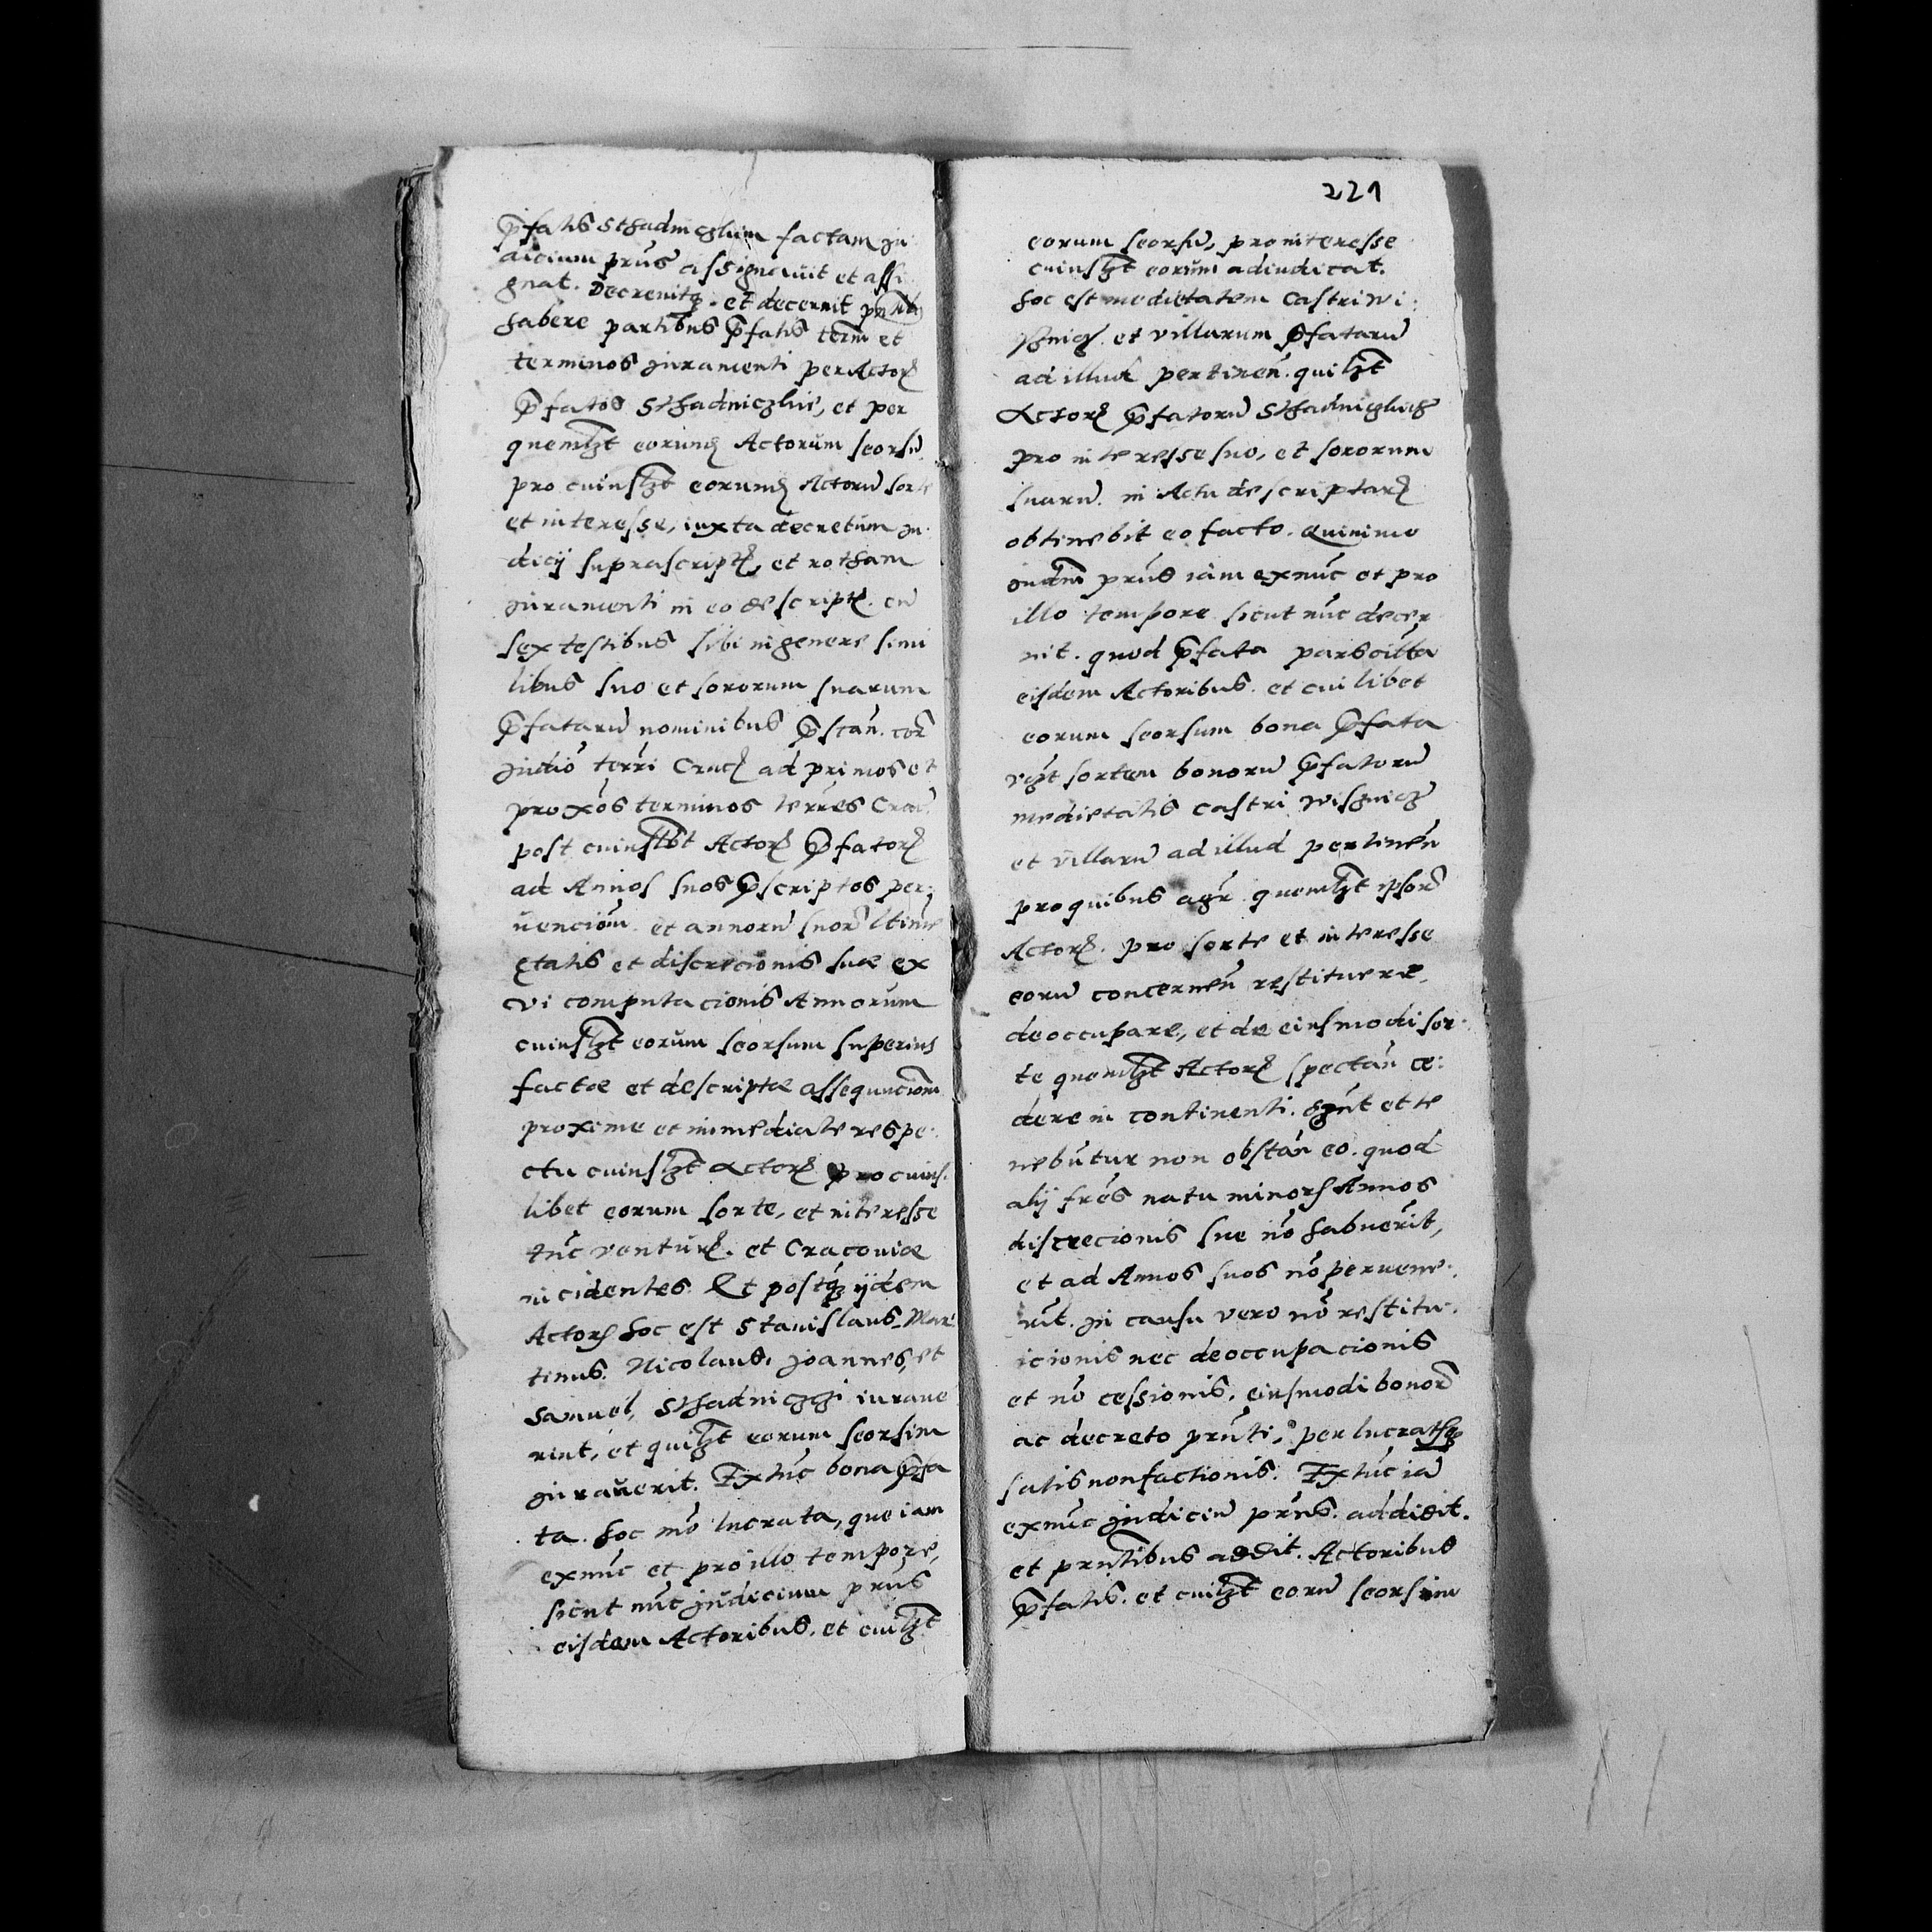 p̃fatis Sthadniczkim factam Ju
dicium pr̃ns assignavit et assi
gnat. Decrevitq. et decernit
habere partibus p̃fatis term̃ et
terminos Juramenti per Actor
p̃fatos Sthadniczkie, et per
quemlzt eorund Actorum seorsũ
pro cuiuslzt eorund Actorũ sorte
et interesse, iuxta decretum Ju
dicij suprascript, et rotham
Juramenti in eo descript. cũ
sex testibus sibi in genere simi
libus suo et sororum suarum
p̃fatarũ nominibus p̃stan̄. cor̃
Judio terri Crac ad primos et
proxos terminos terres Crac
post cuiuslbt Actor p̃fator
ad Annos suos p̃scriptos per
vencionẽ et annorũ suor̃ ltime
ętatis et discrecionis suæ ex
vi computacionis Annorum
cuiuslzt eorum seorsum superius
factæ et descriptæ assequucionẽ
proxime et immediate respe
ctu cuiuslzt Actor pro cuius
libet eorum sorte, et interesse
tũc ventur. et Cracoviæ
incidentes. Et postq̃ ijdem
Actor hoc est Stanislaus, Mar
tinus. Nicolaus. Joannes, et
Samuel, Sthadniczĩ iurave
rint, et quilzt eorum seorsim
Juraverit. Extũc bona p̃fa
ta. hoc mõ lucrata, que iam
exnũc et pro illo tempore,
sicut nũc Judicium pr̃ns
eisdem Actoribus. et cuilzt
221
eorum seorsũ, pro interesse
cuiuslzt eorum adiudicat.
hoc est medietatem Castri Wi:
sznicz. et villarum p̃fatarũ
ad illud pertinen̄. quilzt
Actor p̃fatorũ Sthadniczkich
pro interesse suo, et sororum
suarũ. in Actu descriptar
obtinebit eo facto. Quinimo
Judm pr̃ns iam exnũc et pro
illo tempore sicut nũc decer
nit. quod p̃fata pars citta
eisdem Actoribus. et cuilibet
eorum seorsum bona p̃fata
vlzt sortem bonorũ p̃fatorũ
medietatis castri Wisznicz
et villarũ ad illud pertinen̄
pro quibus agr̃ quemlzt ipsor̃
Actor. pro sorte et interesse
eorũ concernen̄ restituere,
deoccupare, et de eiusmodi sor
te quemlzt Actor spectan̄ ce:
dere in continenti. dznt et te
nebũtur non obstan̄ eo. quod
alij fres natu minor Annos
discrecionis sue nõ habuerit,
et ad Annos suos nõ pervene:
rũt. In causu vero nõ restitu:
icionis nec deoccupacionis
et nõ cessionis. eiusmodi bonor̃
ac decreto pr̃nti, per lucra
satisnonfactionis. Extũc iã
exnũc Judiciũ pr̃ns. addidit.
et pr̃ntibus addit. Actoribus
p̃fatis. et cuilzt eorũ seorsim